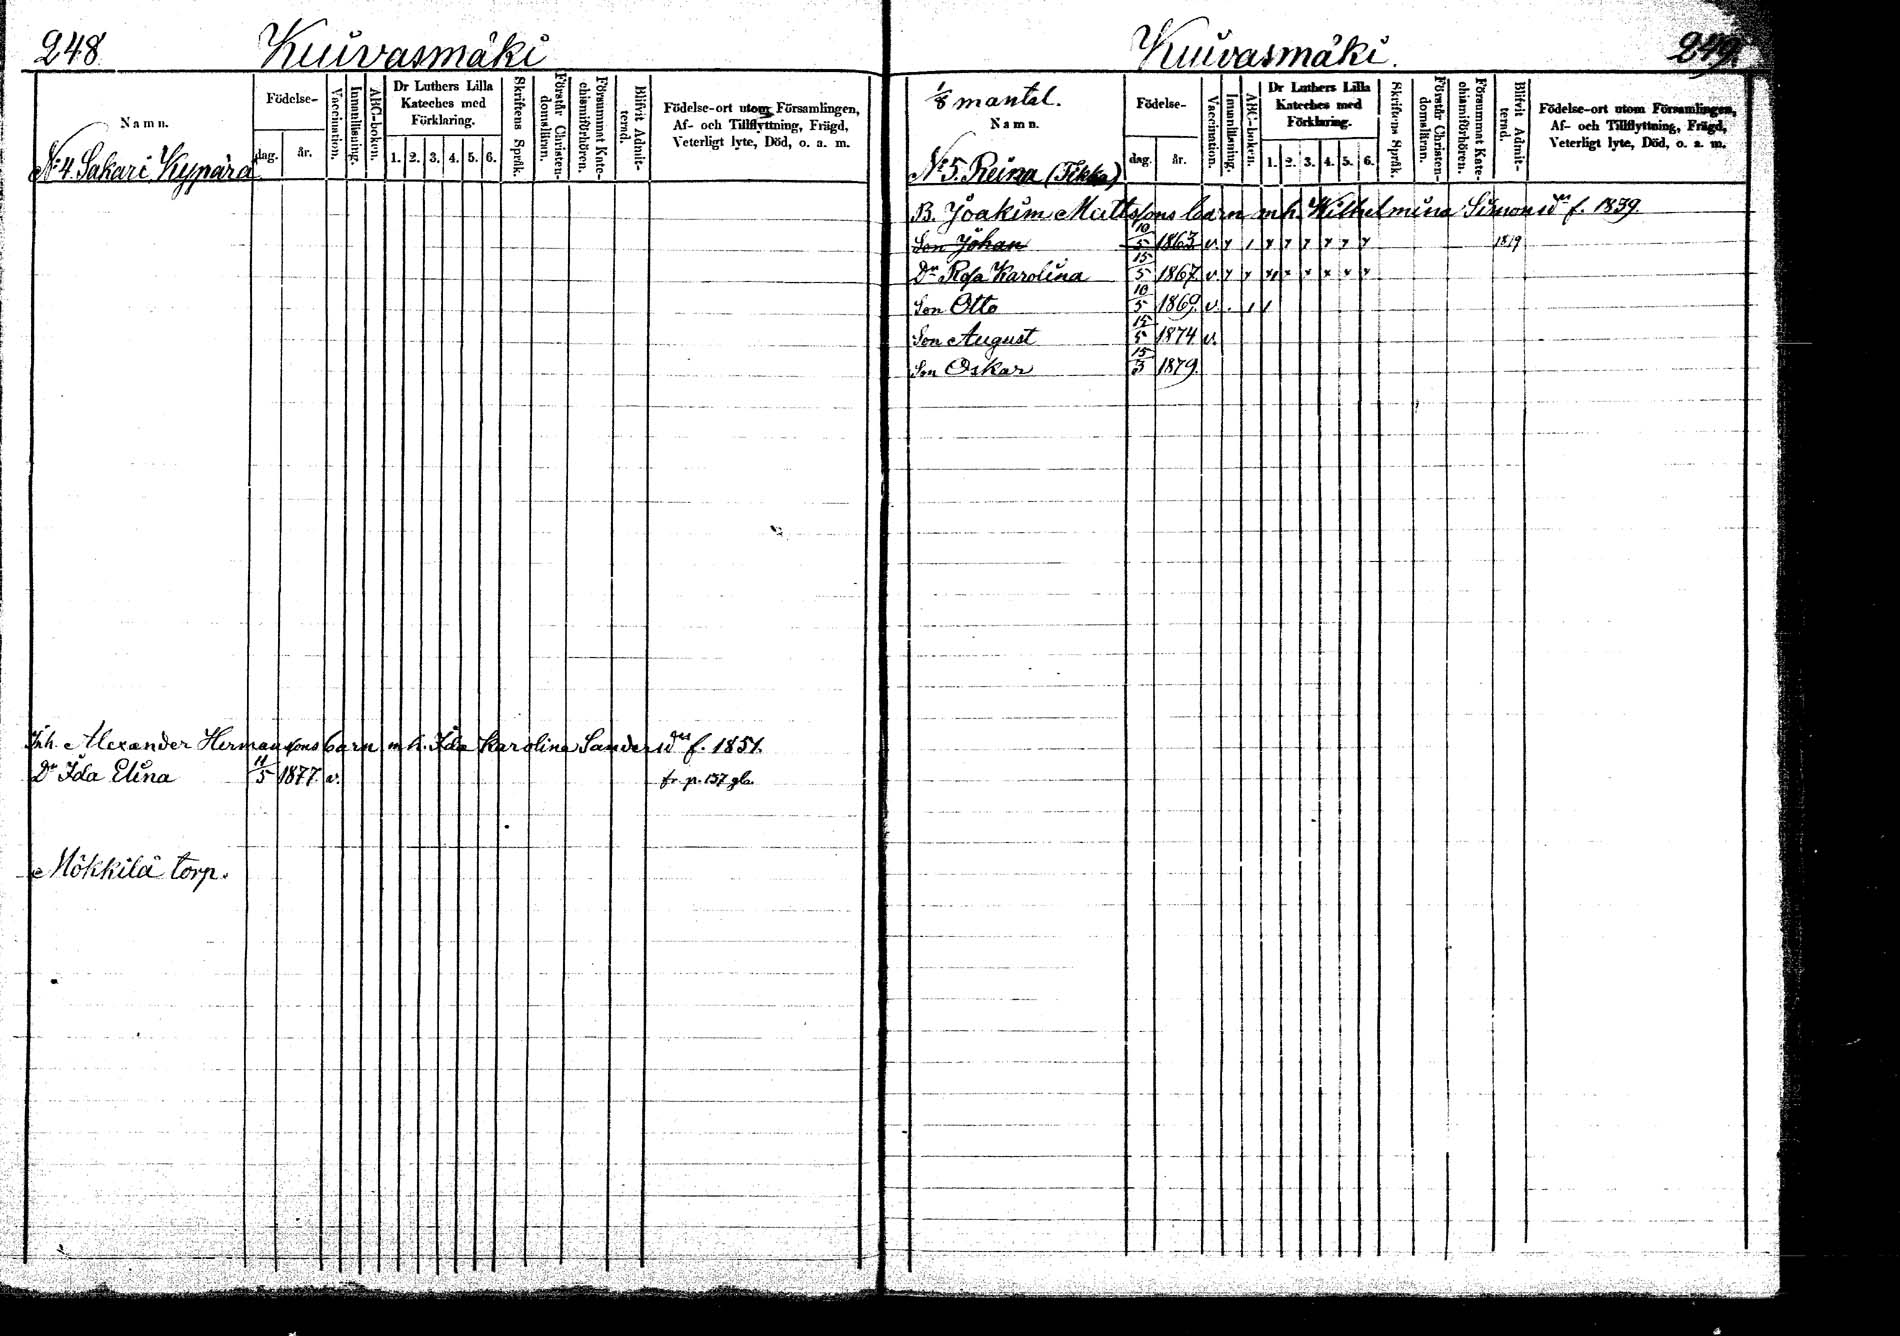 248 Kuivasmäki
Namn.
Födelse-
dag. år.
Vaccination.
Innanläsning.
ABC-boken.
Dr Luthers Lilla
Kateches med
Förklaring.
1. 2. 3. 4. 5. 6.
Skriftens Språk.
Förstår Christen-
domsläran.
Försummat Kate-
chismiförhören.
Blifvit Admit-
terad.
Födelse-ort utom Församlingen,
Af- och Tillflyttning, Frägd,
Veterligt lyte, Död, o. a. m.
N:4. Sakari, Kypärä
Inh. Alexander Hermanssons barn m h. Ida Karolina Sandersdr f. 1851.
Dr Ida Elina 11/5 1877 v. fr. p. 137 gla.
Mökkilä torp.
Kuivasmäki. 249.
1/8 mantal.
Namn.
Födelse-
dag. år.
Vaccination.
Innanläsning.
ABC-boken.
Dr Luthers Lilla
Kateches med
Förklaring.
1. 2. 3. 4. 5. 6.
Skriftens Språk.
Förstår Christen-
domsläran.
Försummat Kate-
chismiförhören.
Blifvit Admit-
terad.
Födelse-ort utom Församlingen,
Af- och Tillflyttning, Frägd,
Veterligt lyte, Död, o. a. m.
N:5. Reina (Tikka)
B. Joakim Mattssons barn m h. Wilhelmina Simonsdr f. 1839.
Son Johan 10/5 1863 v
Dr Rosa Karolina 15/5 1867 v.
Son Otto 10/5 1869. v.
Son August 15/5 1874 v.
Son Oskar 15/3 1879.